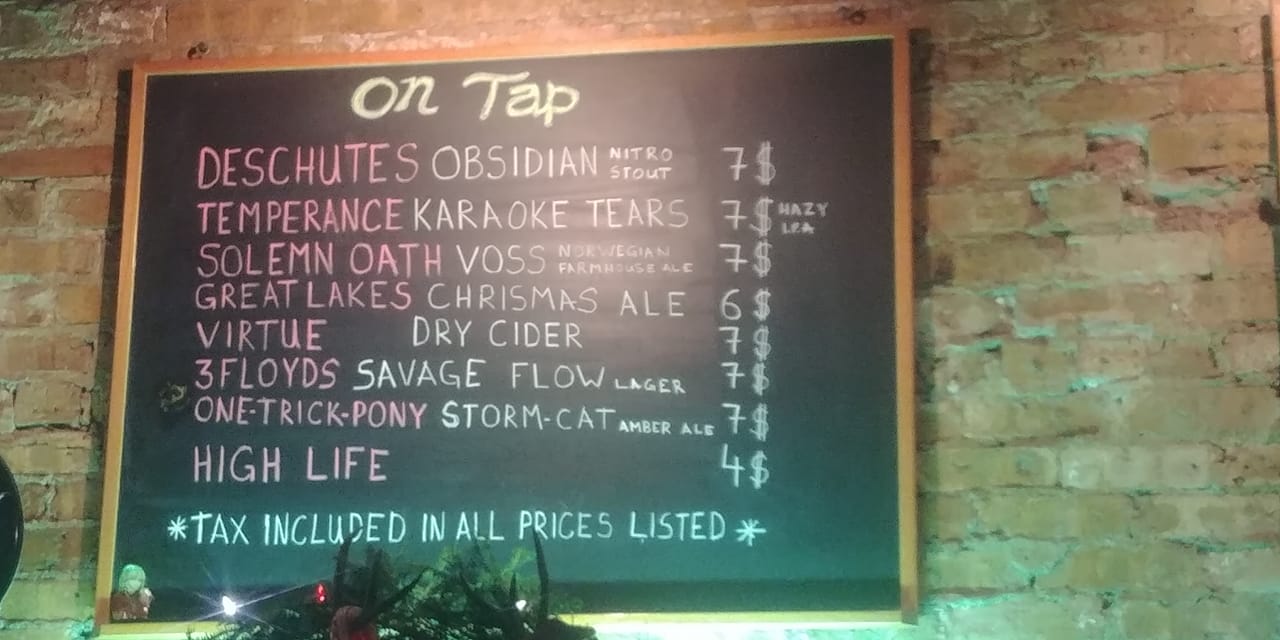 On Tap
DESCHUTES OBSIDIAN NITRO STOUT 7$
TEMPERANCE KARAOKE TEARS 7$ HAZY
SOLEMN OATH VOSS NORWEGIAN FARMHOUSE ALE 7$
GREAT LAKES CHRISMAS ALE 6$
VIRTUE DRY CIDER 7$
3FLOYDS SAVAGE FLOW LAGER 7$
ONE-TRICK-PONY STORM-CAT AMBER ALE 7$
HIGH LIFE 4$
*TAX INCLUDED IN ALL PRICES LISTED*